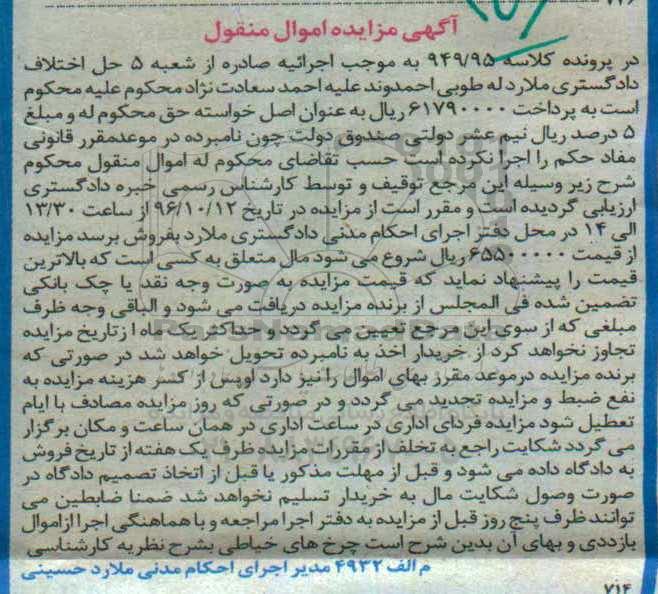 آگهی مزایده اموال منقول
در پرونده کلاسه ۹۴۹/۹۵ به موجب اجرائیه صادره از شعبه ۵ حل اختلاف
دادگستری ملارد له طوبی احمدوند علیه احمد سعادت نژاد محکوم علیه محکوم
است به پرداخت ۶۱۷۹۰۰۰۰ ریال به عنوان اصل خواسته حق محکوم له و مبلغ
۵ درصد ریال نیم عشر دولتی صندوق دولت چون نامبرده در موعد مقرر قانونی
مفاد حکم را اجرا نکرده است حسب تقاضای محکوم له اموال منقول محکوم
شرح زیر وسیله این مرجع توقیف و توسط کارشناس رسمی خبره دادگستری
ارزیابی گردیده است و مقرر است از مزایده در تاریخ ۹۶/۱۰/۱۲ از ساعت ۱۳/۳۰
الی ۱۴ در محل دفتر اجرای احکام مدنی دادگستری ملارد بفروش برسد مزایده
از قیمت ۶۵۵۰۰۰۰۰ ریال شروع می شود مال متعلق به کسی است که بالاترین
قیمت را پیشنهاد نماید که قیمت مزایده به صورت وجه نقد یا چک بانکی
تضمین شده فی المجلس از برنده مزایده دریافت می شود و الباقی وجه ظرف
مبلغی که از سوی این مرجع تعیین می گردد و حداکثر یک ماه از تاریخ مزایده
تجاوز نخواهد کرد از خریدار اخذ به نامبرده تحویل خواهد شد در صورتی که
برنده مزایده در موعد مقرر بهای اموال را نیز دارد اوپس از کسر هزینه مزایده به
نفع ضبط و مزایده تجدید می گردد و در صورتی که روز مزایده مصادف با ایام
تعطیل شود مزایده فردای اداری در ساعت اداری در همان ساعت و مکان برگزار
می گردد شکایت راجع به تخلف از مقررات مزایده ظرف یک هفته از تاریخ فروش
به دادگاه داده می شود و قبل از مهلت مذکور یا قبل از اتخاذ تصمیم دادگاه در
صورت وصول شکایت مال به خریدار تسلیم نخواهد شد ضمنا ضابطین می
توانند ظرف پنج روز قبل از مزایده به دفتر اجرا مراجعه و با هماهنگی اجرا از اموال
بازددی و بهای آن بدین شرح است چرخ های خیاطی بشرح نظریه کارشناسی
م الف ۴۹۳۲ مدیر اجرای احکام مدنی ملارد حسینی
۷۱۴